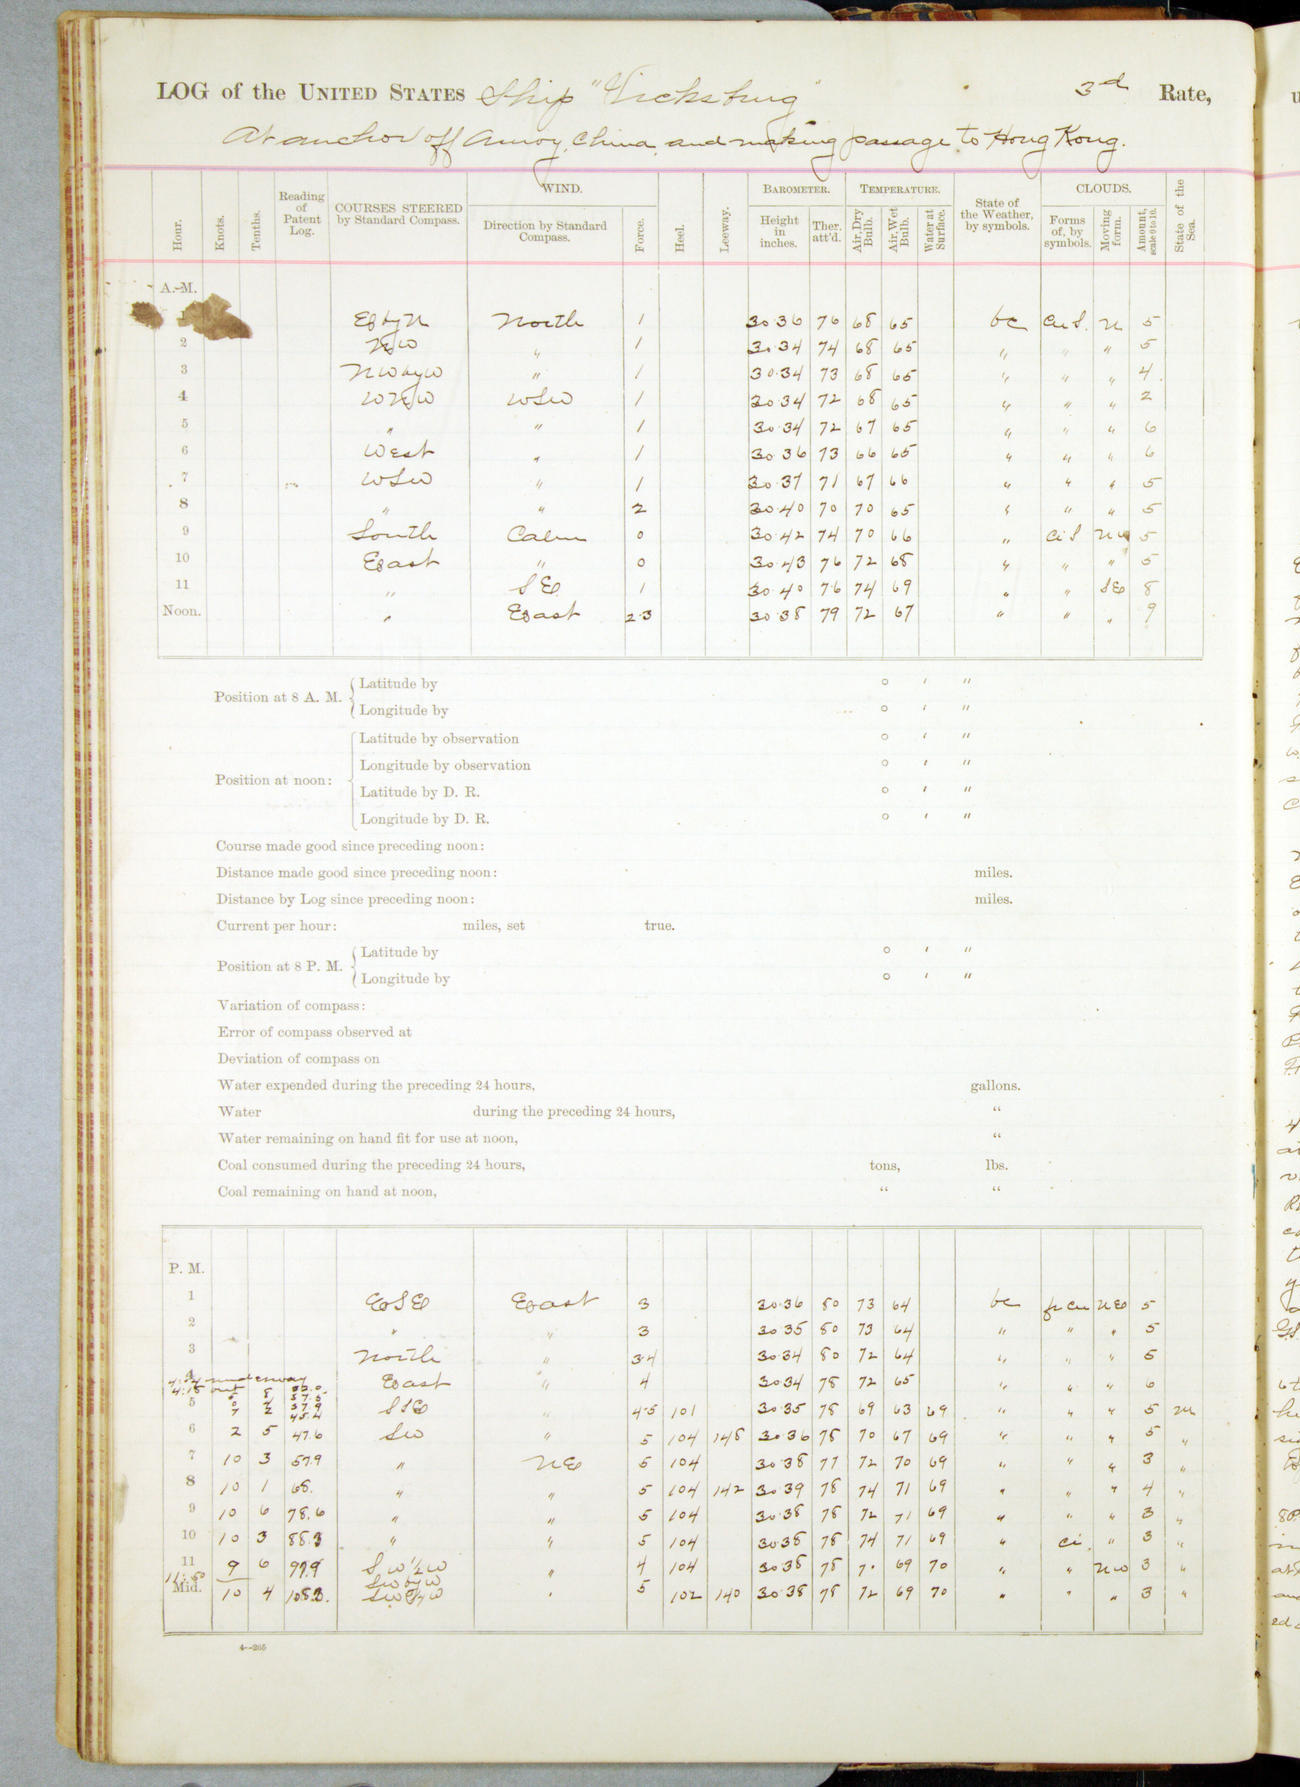 LOG of the UNITED STATES Ship "Vicksburg" 3rd Rate,
At anchor off Amoy, China, and making passage to Hong Kong.
Hour. Knots. Tenths. Reading of Patent Log. COURSES STEERED by Standard Compass. WIND. Direction by Standard Compass. Force. Heel. Leeway. BAROMETER. Height in inches. Ther. att'd. TEMPERATURE. Air, Dry Bulb. Air, Wet Bulb. Water at Surface. State of the Weather, by symbols. CLOUDS. Forms of, by symbols. Moving from. Amount, scale 0 to 10. State of the Sea.
A.M.
E by N North 1 30.36 76 68 65 bc Cu S. N 5
2 NW " 1 30.34 74 68 65 " " " 5
3 NW by W " 1 30.34 73 68 65 " " " 4
4 WNW WSW 1 30.34 72 68 65 " " " 2
5 " " 1 30.34 72 67 65 " " " 6
6 West " 1 30.36 73 66 65 " " " 6
7 WSW " 1 30.37 71 67 66 " " " 5
8 " " 2 30.40 70 70 65 " " " 5
9 South Calm 0 30.42 74 70 66 " Ci S NW 5
10 East " 0 30.43 76 72 68 " " " 5
11 " SE 1 30.40 76 74 69 " " SE 8
Noon. " East 2.3 30.38 79 72 67 " " " 9
Position at 8 A. M. Latitude by ° ′ ″
Longitude by ° ′ ″
Position at noon: Latitude by observation ° ′ ″
Longitude by observation ° ′ ″
Latitude by D. R. ° ′ ″
Longitude by D. R. ° ′ ″
Course made good since preceding noon:
Distance made good since preceding noon: miles.
Distance by Log since preceding noon: miles.
Current per hour: miles, set true.
Position at 8 P. M. Latitude by ° ′ ″
Longitude by ° ′ ″
Variation of compass:
Error of compass observed at
Deviation of compass on
Water expended during the preceding 24 hours, gallons.
Water during the preceding 24 hours, "
Water remaining on hand fit for use at noon, "
Coal consumed during the preceding 24 hours, tons, lbs.
Coal remaining on hand at noon, " "
P. M.
1 ESE East 3 30.36 80 73 64 bc fr cu NE 5
2 " " 3 30.35 80 73 64 " " " 5
3 North " 3.4 30.34 80 72 64 " " " 5
4 underway East " 4 30.34 78 72 65 " " " 6
4:15 out 37.5
5 7 2 45.4 SSE " 4-5 101 30.35 78 69 63 69 " " " 5 M
6 2 5 47.6 SW " 5 104 148 30.36 78 70 67 69 " " " 5 "
7 10 3 57.9 " NE 5 104 30.38 77 72 70 69 " " " 3 "
8 10 1 68. " " 5 104 142 30.39 78 74 71 69 " " " 4 "
9 10 6 78.6 " " 5 104 30.38 78 72 71 69 " " " 3 "
10 10 3 88.3 " " 5 104 30.38 78 74 71 69 " Ci. " 3 "
11 9 6 97.9 SW ½ W " 4 104 30.38 78 7· 69 70 " " NW 3 "
11:50 SW by W
Mid. 10 4 108.3. " 5 102 140 30.38 78 72 69 70 " " " 3 "
4—265